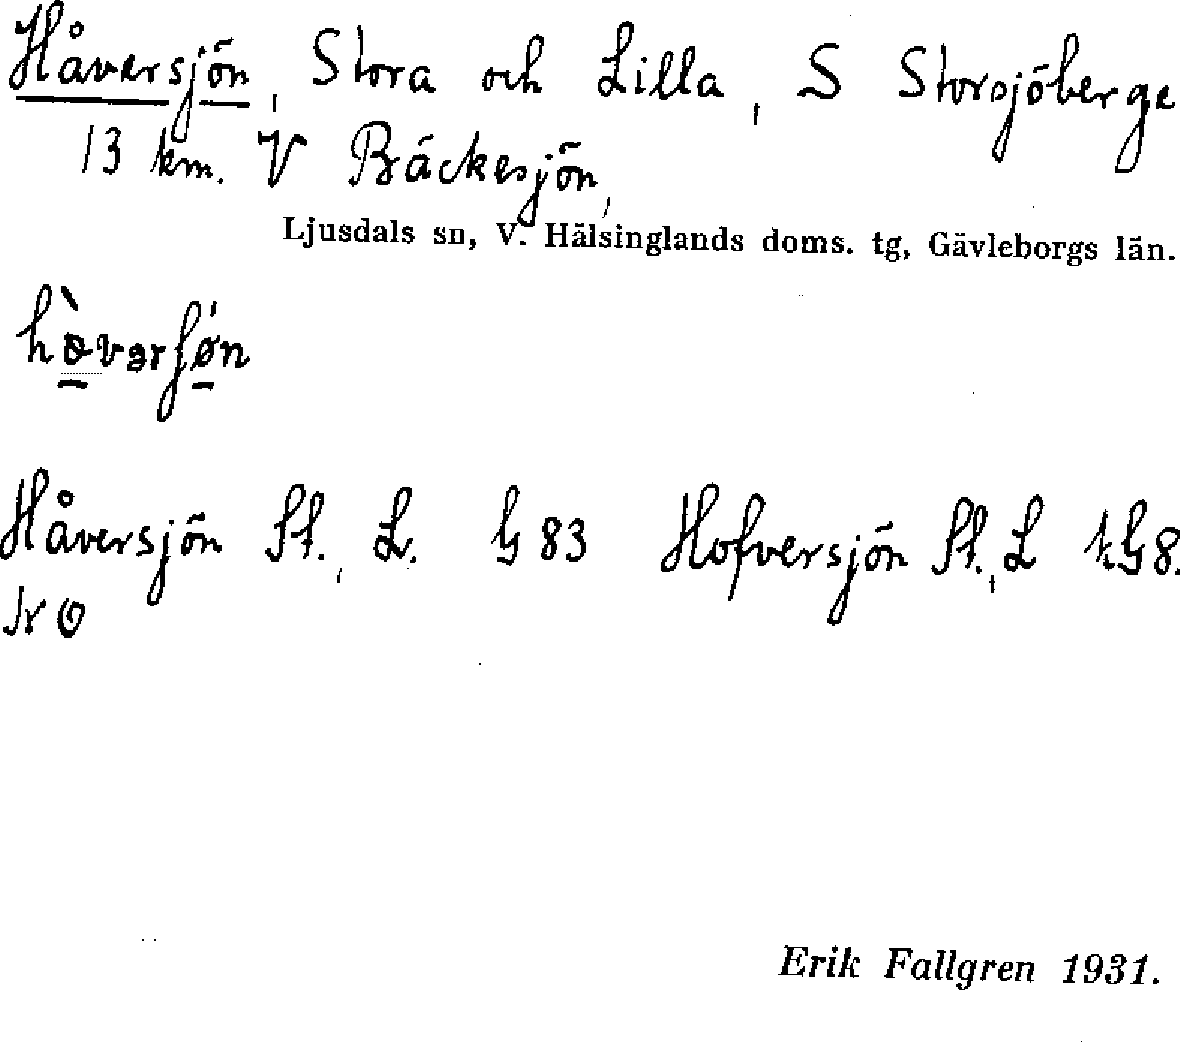 Håversjön, Stora och Lilla, S Storsjöberge
13 km. V Bäckesjön,
Ljusdals sn, V. Hälsinglands doms. tg, Gävleborgs län.
Håversjön St., L. G 83 Hofversjön St., L t.G 8.